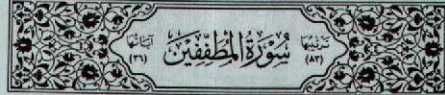 تَرْتِيبُهَا سُورَةُ المُطَفِّفِينَ آيَاتُهَا
(٨٣) (٣٦)